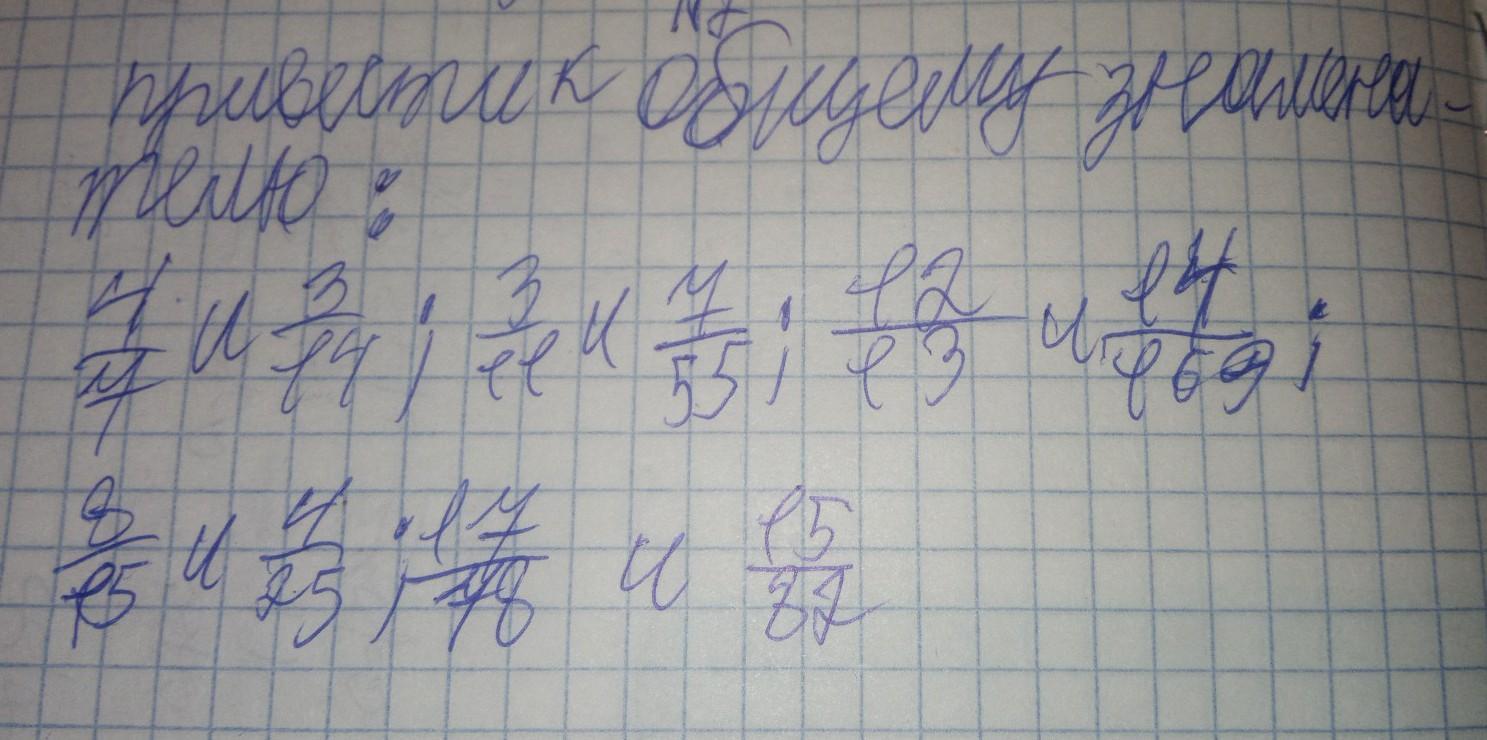 №7
привести к общему знамена-
телю :
4/7 и 3/14 ; 3/11 и 7/55 ; 12/13 и 14/169 ;
8/15 и 4/25 ; 17/48 и 15/32